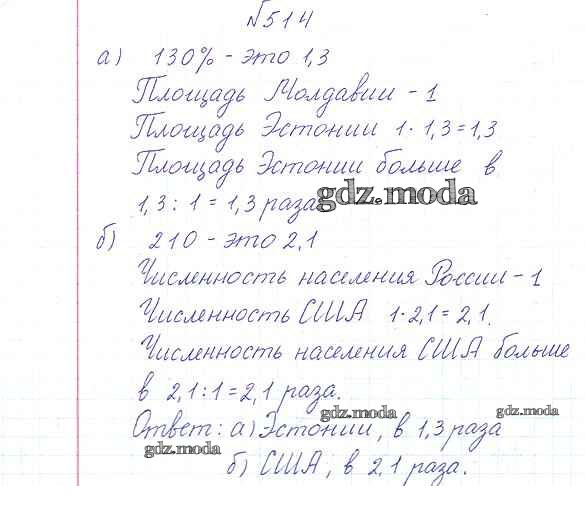 №514
а) 130% - это 1,3
Площадь Молдавии - 1
Площадь Эстонии 1 · 1,3 = 1,3
Площадь Эстонии больше в
1,3 : 1 = 1,3 раза
gdz.moda
б) 210 - это 2,1
Численность населения России - 1
Численность США 1 · 2,1 = 2,1.
Численность населения США больше
в 2,1 : 1 = 2,1 раза.
gdz.moda
gdz.moda
Ответ: а) Эстонии, в 1,3 раза
gdz.moda
б) США, в 2,1 раза.